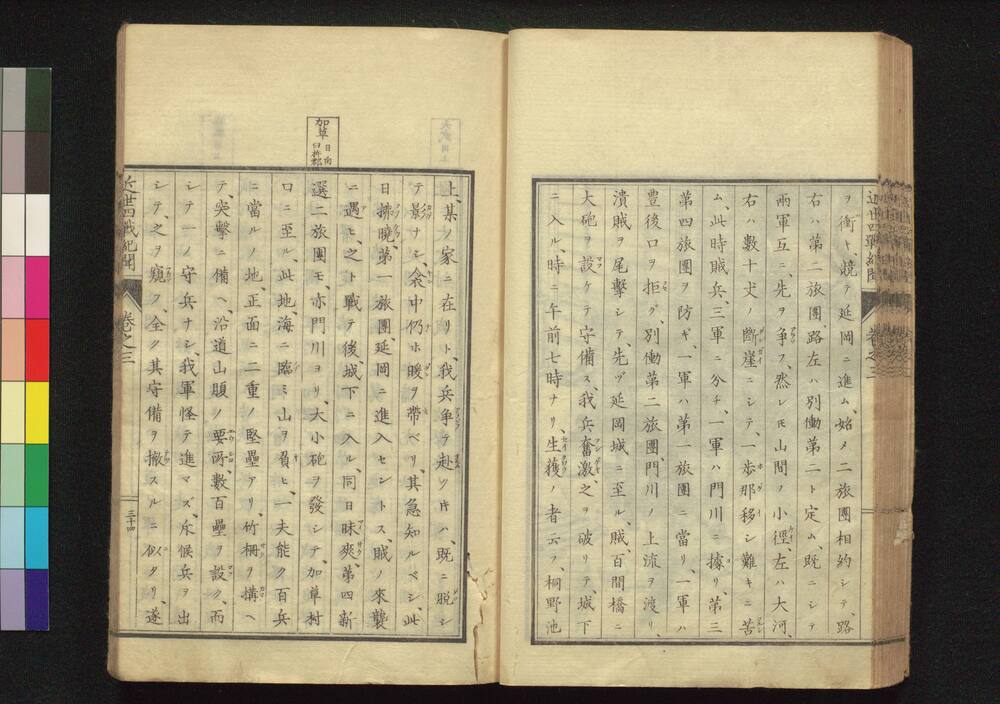 近世四戰紀聞 卷之三
ヲ衝キ、競テ延岡ニ進ム、始メ二旅團相約シテ、路
右ハ第二旅團路左ハ別働第二ト定ム、既ニシテ
兩軍互ニ、先ヲ争フ、然レ𪜈山間ノ小徑、左ハ大河、
右ハ數十丈ノ斷崖ニシテ、一歩那移シ難キニ苦
ム、此時賊兵、三軍ニ分チ、一軍ハ門川ニ據リ、第三
第四旅團ヲ防ギ、一軍ハ第一旅團ニ當リ、一軍ハ
豊後口ヲ拒グ、別働第二旅團、門川ノ上流ヲ渡リ、
潰賊ヲ尾擊シテ、先ヅ延岡城ニ至ル、賊百間橋ニ
大砲ヲ設ケテ守備ス、我兵奮激、之ヲ破リテ、城下
ニ入ル、時ニ午前七時ナリ、生獲ノ者云フ、桐野池
加草 日向臼杵郡
上、某ノ家ニ在リト、我兵争テ赴クキハ、既ニ脱シ
テ影ナシ、衾中仍ホ暖ヲ帶ベリ、其急知ルベシ、此
日拂曉、第一旅團、延岡ニ進入セントス、賊ノ來襲
ニ遇ヒ、之ト戰テ後、城下ニ入ル、同日昧爽、第四新
選二旅團モ、亦門川ヨリ、大小砲ヲ發シテ、加草村
口ニ至ル、此地、海ニ臨ミ山ヲ負ヒ、一夫能ク百兵
ニ當ルノ地、正面ニ二重ノ堅壘アリ、竹柵ヲ搆ヘ
テ、突擊ニ備ヘ、沿道山腹ノ要所、數百壘ヲ設ク、而
シテ一ノ守兵ナシ、我軍怪テ進マズ、斥候兵ヲ出
シテ、之ヲ窺フ、全ク其守備ヲ撤スルニ似タリ、遂
近世四戰紀聞 卷之三 三十四